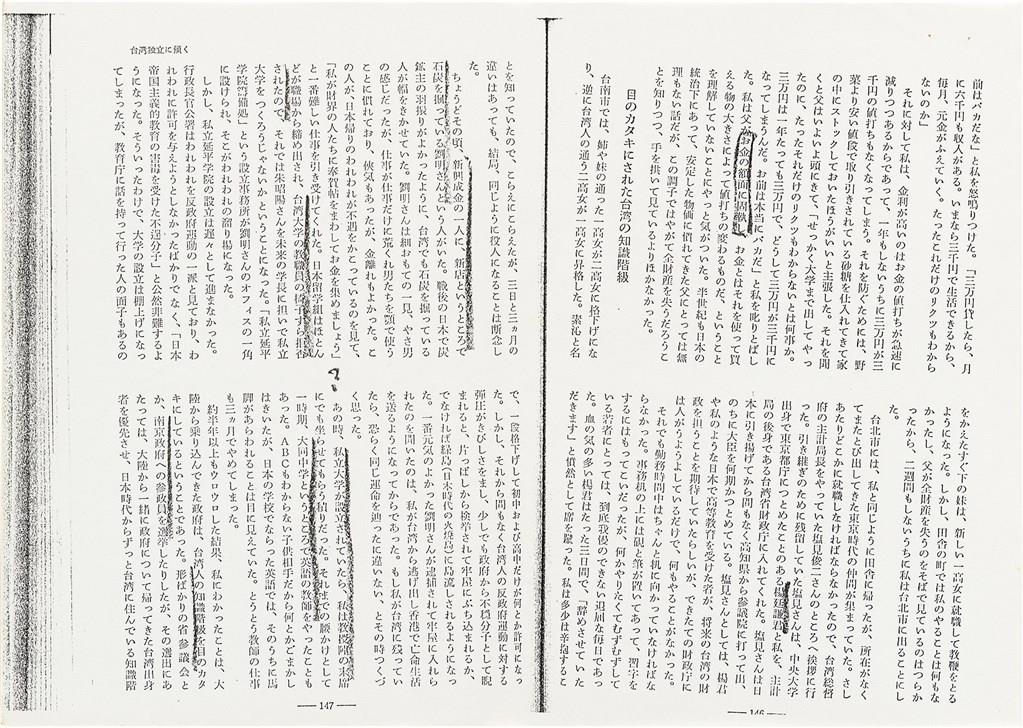 前はバカだな」と私を怒鳴りつけた。「三万円貸したら、月
に六千円も収入がある。いまなら三千円で生活できるから、
毎月、元金がふえていく。たったこれだけのリクツもわから
ないのか」
それに対して私は、金利が高いのはお金の値打ちが急速に
減りつつあるからであって、一年もしないうちに三万円が三
千円の値打ちもなくなってしまう。それを防ぐためには、野
菜より安い値段で取り引きされている砂糖を仕入れてきて家
の中にストックしておいたほうがいいと主張した。それを聞
くと父はいよいよ頭にきて、「せっかく大学まで出してやっ
たのに、たったそれだけのリクツもわからないとは何事か。
三万円は一年たっても三万円で、どうして三万円が三千円に
なってしまうんだ。お前は本当にバカだ」と私を叱りとばし
た。私は父がお金の額面に固執し、お金とはそれを使って買
える物の大きさによって値打ちの変わるものだ、ということ
を理解していないことにやっと気がついた。半世紀も日本の
統治下にあって、安定した物価に慣れてきた父にとっては無
理もない話だが、この調子ではやがて全財産を失うだろうこ
とを知りつつ、手を拱いて見ているよりほかなかった。
目のカタキにされた台湾の知識階級
台南市では、姉や妹の通った一高女が二高女に格下げにな
り、逆に台湾人の通う二高女が一高女に昇格した。素沁と名
をかえたすぐ下の妹は、新しい一高女に就職して教鞭をとる
ようになった。しかし、田舎の町では私のやることは何もな
かったし、父が全財産を失うのをそばで見ているのはつらか
ったから、二週間もしないうちに私は台北市に出ることにし
た。
台北市には、私と同じように田舎に帰ったが、所在がなく
てまたとび出してきた東京時代の仲間が集まっていた。さし
あたりどこかに就職しなければならなかったので、台湾総督
府の主計局長をやっていた塩見俊二さんのところへ挨拶に行
った。引き継ぎのために残留していた塩見さんは、中央大学
出身で東京都庁につとめたことのある楊廷謙君と私を、主計
局の後身である台湾省財政庁に入れてくれた。塩見さんは日
本に引き揚げてから間もなく高知県から参議院に打って出、
のちに大臣を何期かつとめている。塩見さんとしては、楊君
や私のような日本で高等教育を受けた者が、将来の台湾の財
政を担うことを期待していたらしいが、できたての財政庁に
は人がうようよしているだけで、何もやることがなかった。
それでも勤務時間中はちゃんと机に向かっていなければな
らなかった。事務机の上には硯と筆が置いてあって、習字を
するにはもってこいだったが、何かやりたくてむずむずして
いる若者にとっては、到底我慢のできない退屈な毎日であっ
た。血の気の多い楊君はたった三日間で、「辞めさせていた
だきます」と憤然として席を蹴った。私は多少は辛抱するこ
146
台湾独立に傾く
とを知っていたので、こらえにこらえたが、三日と三ヵ月の
違いはあっても、結局、同じように役人になることは断念し
た。
ちょうどその頃、新興成金の一人に、新店というところで
石炭を掘っている劉明さんという人がいた。戦後の日本で炭
鉱主の羽振りがよかったように、台湾でも石炭を掘っている
人が幅をきかせていた。劉明さんは細おもての一見、やさ男
の感じだったが、仕事が仕事だけに荒くれ男たちを顎で使う
ことに慣れており、俠気もあったが、金離れもよかった。こ
の人が、日本帰りのわれわれが不遇をかこっているのを見て、
「私が財界の人たちに奉賀帖をまわしてお金を集めましょう」
と一番難しい仕事を引き受けてくれた。日本留学組はほとん
どが職場から締め出され、台湾大学の教職員の椅子すら拒否
されたので、それでは朱昭陽さんを未来の学長に担いで私立
大学をつくろうじゃないかということになった。「私立延平
学院籌備処」という設立事務所が劉明さんのオフィスの一角
に設けられ、そこがわれわれの溜り場になった。
しかし、私立延平学院の設立は遅々として進まなかった。
行政長官公署はわれわれを反政府運動の一派と見ており、わ
れわれに許可を与えようとしなかったばかりでなく、「日本
帝国主義的教育の害毒を受けた不逞分子」と公然非難するよ
うになった。そういったわけで、大学の設立は棚上げになっ
てしまったが、教育庁に話を持って行った人の面子もあるの
で、一段格下げして初中および高中だけが何とか許可になっ
た。しかし、それから間もなく台湾人の反政府運動に対する
弾圧がきびしさをまし、少しでも政府から不穏分子として睨
まれると、片っぱしから検挙されて牢屋にぶち込まれるか、
でなければ緑島(日本時代の火焼島)に島流しされるようになっ
た。一番元気のよかった劉明さんが逮捕されて牢屋に入れら
れたのを聞いたのは、私が台湾から逃げ出し香港で亡命生活
を送るようになってからであった。もし私が台湾に残ってい
たら、恐らく同じ運命を辿ったに違いない、とその時つくづ
く思った。
?
あの時、私立大学が設立されていたら、私は教授陣の末席
にでも坐らせてもらう積りだった。それまでの腰かけとして
一時期、大同中学というところで英語の教師をやったことも
あった。ABCもわからない子供相手だから何とかごまかし
はきいたが、日本の学校でならった英語では、そのうちに馬
脚があらわれることは目に見えていた。とうとう教師の仕事
も三ヵ月でやめてしまった。
約半年以上もウロウロした結果、私にわかったことは、大
陸から乗り込んできた政府は、台湾人の知識階級を目のカタ
キにしているということであった。形ばかりの省参議会と
か、南京政府への参政員を選挙したりしたが、その選出にあ
たっては、大陸から一緒に政府について帰ってきた台湾出身
者を優先させ、日本時代からずっと台湾に住んでいる知識階
147